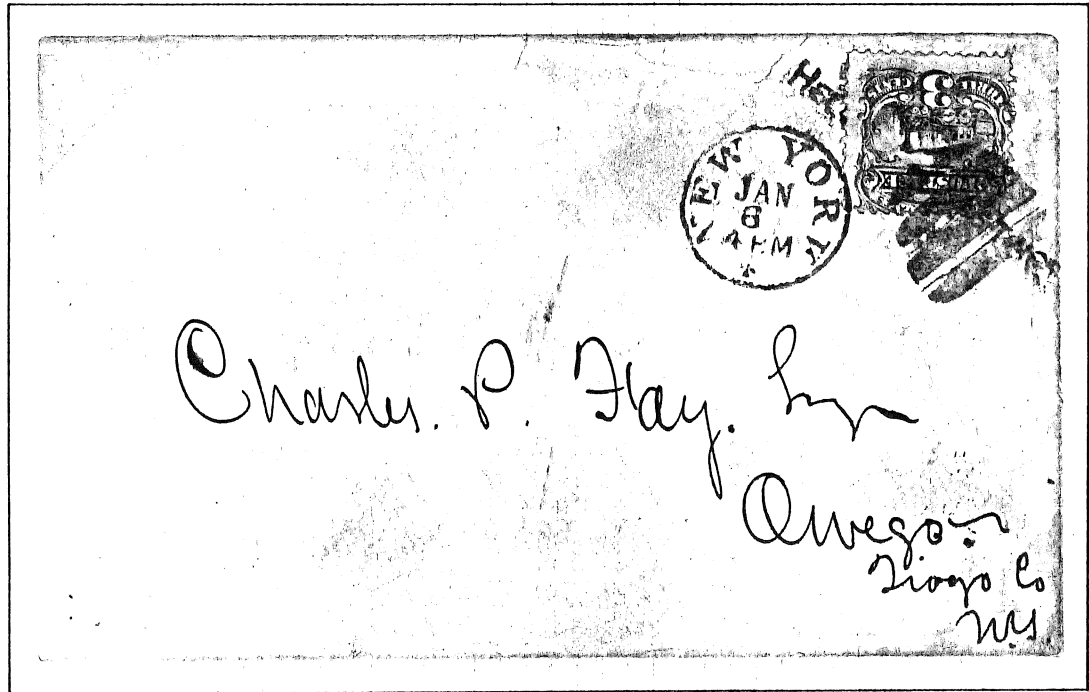 NEW YORK
JAN
6
4 PM
3
Charles. P.
Owego
Tioga Co
N.Y.